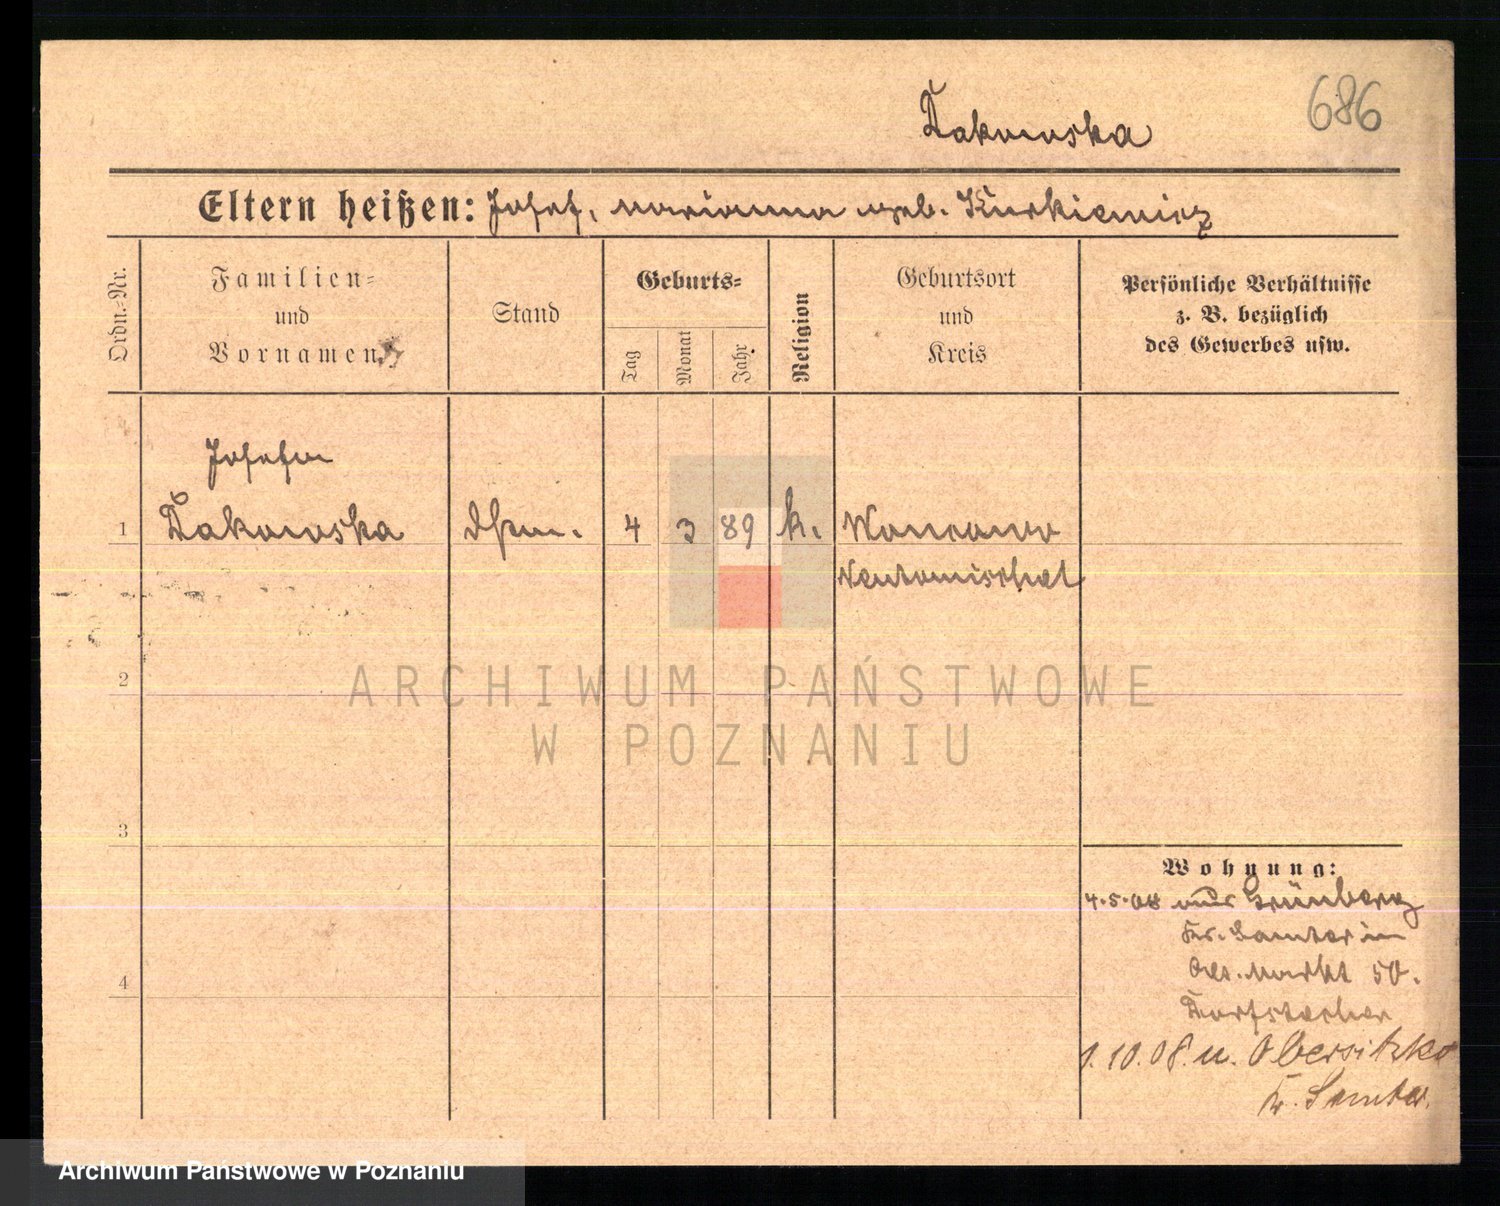 686
Żakowska
Eltern heißen: Josef, Marianna geb. Kurkiewicz
Ordn.-Nr.
Familien-
und
Vornamen
Stand
Geburts-
Tag
Monat
Jahr
Religion
Geburtsort
und
Kreis
Persönliche Verhältnisse
z. B. bezüglich
des Gewerbes usw.
Josefa
1 Żakowska 4 3 89 k.
Neutomischel
2
ARCHIWUM PAŃSTWOWE
W POZNANIU
3
Wohnung:
4.5.08 aus Grünberg
Kr. Samter in
Markt 50.
4
1.10.08. n. Obersitzko
Kr. Samter.
Archiwum Państwowe w Poznaniu